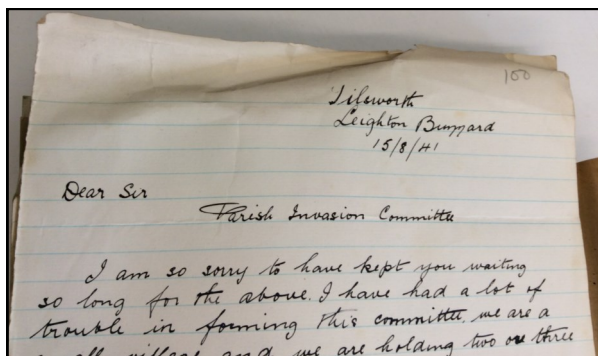 100
Tilsworth
Leighton Buzzard
15/8/41
Dear Sir
Parish Invasion Committee
I am so sorry to have kept you waiting
so long for the above. I have had a lot of
trouble in forming this committee we are a
small village and we are holding two or three